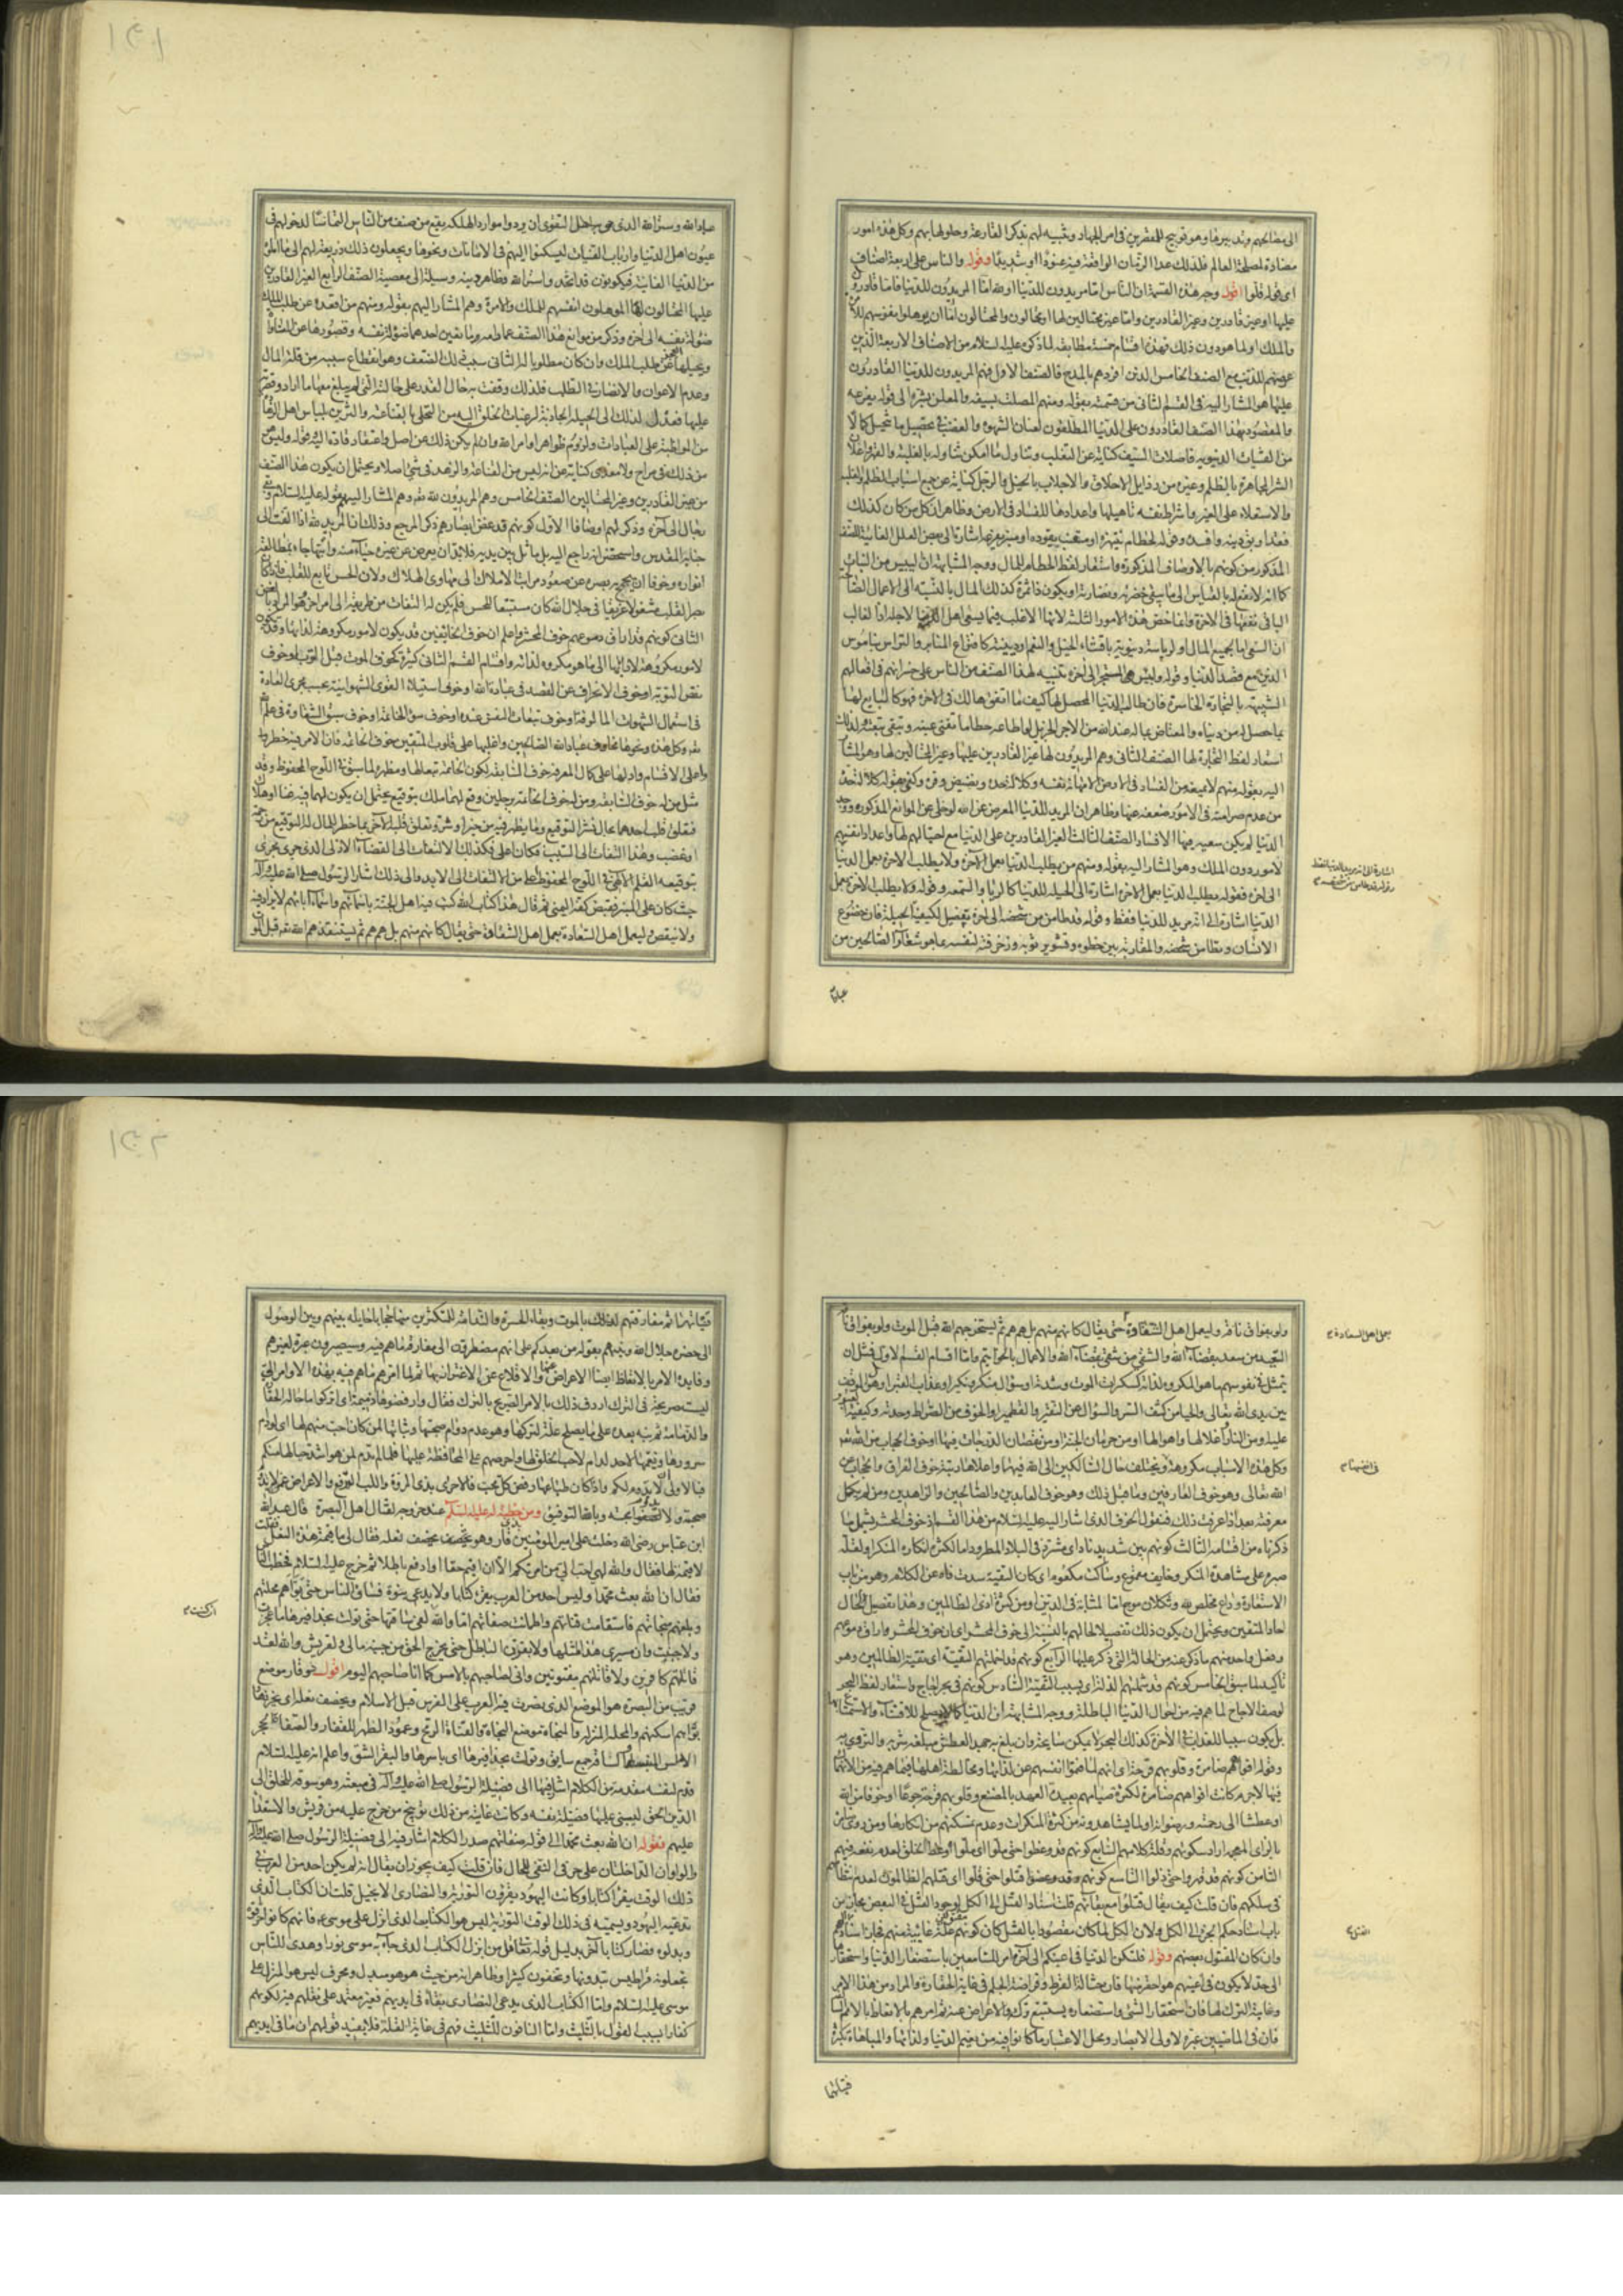 الى مصالحهم وتدبيرها وهو توبيخ للمقصرين فى امر الجهاد وتنبيه لهم بذكر القارعة وحلولها بهم وكل هذه امور
مضادة لمصلحة العالم فلذلك عد الزمان الواقعة فيه عنودا او شديدا وقوله والناس على اربعة اصناف
الى قوله قلوا اقول وجه هذه القسمة ان الناس اما مريدون للدنيا او لله اما المريدون للدنيا فاما قادرون
عليها او غير قادرين وغير القادرين اما غير محتالين لها او محتالون والمحتالون اما ان يوهلوا نفوسهم للامرة
والملك او لما هو دون ذلك فهذه اقسام خمسة مطابقة لما ذكره عليه السلام من الاصناف الاربعة الذين
عرضهم للذم مع الصنف الخامس الذين افردهم بالمدح فالصنف الاول فهم المريدون للدنيا القادرون
عليها هو المشار اليه فى القسم الثانى من قسمته بقوله ومنهم المصلت بسيفه والمعلن بشره الى قوله يفرعه
والمقصود بهذا الصنف القادرون على الدنيا المطلقون لعنان الشهوة والغضب فى تحصيل ما يتخيل كمالا
من القنيات الدنيوية فاصلات السيف كناية عن التغلب وتناول ما امكن تناوله بالغلبة والقهر واعلان
الشر المجاهرة بالظلم وغيره من رذايل الاخلاق والاجلاب بالخيل والرجل كناية عن جمع اسباب الظلم والغلبة
والاستعلاء على الغير واشراط نفسه تاهيلها واعدادها للفساد فى الارض وظاهر ان كل من كان كذلك
فقد اوبق دينه وافسده وقوله لحطام ينتهزه او مقنب يقوده او منبر يفرعه اشارة الى بعض العلل الغائية للصنف
المذكور من كونهم بالاوصاف المذكورة واستعار لفظ الحطام للمال ووجه المشابهة ان اليبيس من النبات
كما انه لا نفع له بالقياس الى ما يبقى خضرته ونضارته او يكون ذا ثمرة كذلك المال بالنسبة الى الاعمال الصالحة
الباقى نفعها فى الآخرة وانما خص هذه الامور الثلثة لانها الاغلب فيما يسعى اهل الدنيا لاجله اذ الغالب
ان السعى اما لجمع المال او لرياسة دنيوية باقتناء الخيل والنعم او دينية كافتراع المنابر والتراس بناموس
الدين مع قصد الدنيا وقوله ولبئس المتجر الى آخره تنبيه لهذا الصنف من الناس على خسرانهم فى افعالهم
الشبيهة بالتجارة الخاسرة فان طالب الدنيا المحصل لها كيف ما اتفق هالك فى الآخرة فهو كالبايع لها
بما حصل له من دنياه والمعتاض بما له عند الله من الاجر الجزيل لو اطاعه حطاما تفنى عينه وتبقى تبعته ولذلك
استعار لفظ التجارة لها الصنف الثانى وهم المريدون لها غير القادرين عليها وغير المحتالين لها وهو المشار
اليه بقوله منهم لا يمنعه من الفساد فى الارض الا مهانة نفسه وكلالة حده ونضيض وفره وكنى بقوله كلالة حده
من عدم صرامته فى الامور وضعفه عنها وظاهر ان المريد للدنيا المعرض عن الله لو خلى عن الموانع المذكورة ووجد
الدنيا لم يكن سعيه فيها الا فسادا الصنف الثالث الغير القادرين على الدنيا مع احتيالهم لها واعداد انفسهم
لامور دون الملك وهو المشار اليه بقوله ومنهم من يطلب الدنيا بعمل الآخرة ولا يطلب الآخرة بعمل الدنيا
الى آخره فقوله يطلب الدنيا بعمل الآخرة اشارة الى الحيلة للدنيا كالريا والسمعة وقوله ولا يطلب الآخرة بعمل
الدنيا اشارة الى انه مريد للدنيا فقط وقوله قد طامن من شخصه الى آخره تفصيل لكيفية الحيلة فان خضوع
الانسان وتطامن شخصه والمقاربة بين خطوه وتشمير ثوبه وزخرفته لنفسه بما هو شعار الصالحين من
عباد
عباد الله وستر الله الذى هو حمى اهل التقوى ان يردوا موارد الهلكة يقع من صنف من الناس التماسا لدخولهم فى
عيون اهل الدنيا وارباب القنيات ليسكنوا اليهم فى الامانات ونحوها ويجعلون ذلك ذريعة لهم الى ما املوه
من الدنيا الفانية فيكونون قد اتخذوا ستر الله وظاهر دينه وسيلة الى معصيته الصنف الرابع الغير القادرين
عليها المحتالون لها الموهلون انفسهم للملك والامرة وهم المشار اليهم بقوله ومنهم من اقعده عن طلب الملك
ضؤلة نفسه الى آخره وذكر من موانع هذا الصنف عما طلبه مانعين احدهما ضؤولة نفسه وقصورها عن المناواة
وتخيلها العجز عن طلب الملك وان كان مطلوبا له الثانى سبب ذلك الضعف وهو انقطاع سببه من قلة المال
وعدم الاعوان والانصار فى الطلب فلذلك وقفت به حال القدر على حالته التى لم يبلغ معها ما اراد وقصرته
عليها فعدل لذلك الى الحيلة الجاذبة لرغبات الخلق اليه من التحلى بالقناعة والتزين بلباس اهل الزهادة
من المواظبة على العبادات ولزوم ظواهر اوامر الله وان لم يكن ذلك عن اصل واعتقاد قاده اليه وقوله وليس
من ذلك فى مراح ولا مغدى كناية عن انه ليس من القناعة والزهد فى شئ اصلا ويحتمل ان يكون هذا الصنف
من غير القادرين وغير المحتالين الصنف الخامس وهم المريدون لله تعالى وهم المشار اليهم بقوله عليه السلام وبقى
رجال الى آخره وذكر لهم اوصافا الاول كونهم قد غض ابصارهم ذكر المرجع وذلك ان المريد لله اذا التفت الى
جنابه المقدس واستحضر انه راجع اليه بل ماثل بين يديه فلا بد ان يعرض عن غيره حياء منه وابتهاجا بمطالعة
انواره وخوفا ان يجمح به بصره عن صعود مراتب الاملاك الى مهاوى الهلاك ولان الحس تابع للقلب فاذا كان
بصر القلب مشغولا غريقا فى جلال الله كان مستتبعا للحس فلم يكن له التفات من طريقه الى امر آخر وهو المراد بالغض
الثانى كونهم قد اراق دموعهم خوف المحشر واعلم ان خوف الخايفين قد يكون لامور مكروهة لذاتها وقد يكون
لامور مكروهة لادائها الى ما هو مكروه لذاته واقسام القسم الثانى كثيرة كخوف الموت قبل التوبة او خوف
نقض التوبة او خوف الانحراف عن القصد فى عبادة الله او خوف استيلاء القوى الشهوانية بحسب مجرى العادة
فى استعمال الشهوات المالوفة او خوف تبعات الناس عنده او خوف سوء الخاتمة او خوف سبق الشقاوة فى علم الله
تعالى وكل هذه ونحوها مخاوف عباد الله الصالحين واغلبها على قلوب المتقين خوف الخاتمة فان الامر فيه خطر
واعلى الاقسام وادلها على كمال المعرفة خوف السابقة لكون الخاتمة تبعا لها ومظهرة لما سبق فى اللوح المحفوظ وقد
مثل من له خوف السابقة ومن له خوف الخاتمة برجلين وقع لهما ملك بتوقيع يحتمل ان يكون لهما فيه غنا او هلاك
فتعلق قلب احدهما بحال نشر التوقيع وما يظهر فيه من خير او شر وتعلق قلب الآخر بما خطر للملك حال التوقيع من رحمة
او غضب وهذا التفات الى السبب فكان اعلى فكذلك الالتفات الى القضاء الازلى الذى جرى
بتوقيعه القلم الالهى فى اللوح المحفوظ اعلى من الالتفات الى الابد والى ذلك اشار الرسول صلى الله عليه وآله
حيث كان على المنبر فقبض كفه اليمنى ثم قال هذا كتاب الله كتب فيه اهل الجنة باسمائهم واسماء آبائهم لا يزاد فيه
ولا ينقص وليعمل اهل السعادة بعمل اهل الشقاوة حتى يقال كانهم منهم بل هم هم ثم يستنقذهم الله قبل الموت
ولو بفواق ناقة وليعمل اهل الشقاوة حتى يقال كانهم منهم بل هم هم ثم يستخرجهم الله قبل الموت ولو بفواق ناقة
السعيد من سعد بقضاء الله والشقى من شقى بقضاء الله والاعمال بالخواتيم واما اقسام القسم الاول فمثل ان
يتمثل فى نفوسهم ما هو المكروه لذاته كسكرات الموت وشدته او سؤال منكر ونكير او عذاب القبر او هول الموقف
بين يدى الله تعالى والحيا من كشف الستر والسؤال عن النقير والقطمير او الخوف من الصراط وحدته وكيفية العبور
عليه او من النار واغلالها واهوالها او من حرمان الجنة او من نقصان الدرجات فيها او خوف الحجاب من الله تعالى
وكل هذه الاسباب مكروهة ويختلف حال السالكين الى الله فيها واعلاها رتبة خوف الفراق والحجاب عن
الله تعالى وهو خوف العارفين وما قبل ذلك وهو خوف العابدين والصالحين والزاهدين ومن لم يكمل
معرفته بعد اذا عرفت ذلك فنقول الخوف الذى اشار اليه عليه السلام من هذا القسم اذ خوف المحشر يشمل ما
ذكرناه من اقسامه الثالث كونهم بين شريد ناد اى مشرد فى البلاد المطرود اما لكثرة انكاره المنكر او لقلة
صبره على مشاهدة المنكر وخايف مقموع وساكت مكعوم اى كان التقية سدت فاه عن الكلام وهو من باب
الاستعارة وداع مخلص لله وثكلان موجع اما لمصابه فى الدين او من كثرة اذى الظالمين وهذا تفصيل لحال
احاد المتقين ويحتمل ان يكون ذلك تفصيلا لحالهم بالنسبة الى خوف المحشر اى ان خوف المحشر اراق دموعهم
وفعل بواحد منهم ما ذكر عنه من الحالة التى ذكر عليها الرابع كونهم قد اخملتهم التقية اى تقية الظالمين وهو
تاكيد لما سبق الخامس كونهم قد شملتهم الذلة اى بسبب التقية السادس كونهم فى بحر اجاج واستعار لفظ البحر
بوصف الاجاج لما هم فيه من احوال الدنيا الباطلة ووجه المشابهة ان الدنيا كما لا تصلح للاقتناء والاستمتاع
بل يكون سببا للعذاب فى الآخرة كذلك البحر لا يمكن سايحه وان بلغ به جهد العطش مبلغه شربه والتروى به
وقوله افواههم ضامرة وقلوبهم قرحة اى انهم لما فطموا انفسهم عن لذاتها ومخالطة اهلها فيما هم فيه من الانهماك
فيها لاجرم كانت افواههم ضامرة لكثرة صيامهم بعيدة العهد بالمضغ وقلوبهم قرحة جوعا او خوفا من الله
او عطشا الى رحمته ورضوانه او لما يشاهدونه من كثرة المنكرات وعدم تمكنهم من انكارها ومن روى ضامزة
بالزاى المعجمة اراد سكوتهم وقلة كلامهم السابع كونهم قد وعظوا حتى ملوا اى ملوا وعظ الخلق لعدم نفعه فيهم
الثامن كونهم قد قهروا حتى ذلوا التاسع كونهم قد قتلوا حتى قلوا اى قتلهم الظالمون لعدم انتظامهم
فى سلكهم فان قلت كيف يقال قتلوا مع بقائهم قلت اسناد القتل الى الكل لوجود القتل فى البعض مجازا من
باب اسناد حكم الجزء الى الكل ولان الكل لما كان مقصودا بالقتل كان كونهم مقتولين علة غائية منهم فجاز اسناده اليهم
وان كان المقتول بعضهم وقوله فلتكن الدنيا فى اعينكم الى آخره امر للسامعين باستصغار الدنيا واستحقارها
الى حد لا يكون فى اعينهم هو احقر منها فان حثالة القرظ وقراضة الجلم فى غاية الحقارة والمراد من هذا الامر
وغايته الترك لها فان استحقار الشئ واستصغاره يستتبع تركه والاعراض عنه ثم امرهم بالاتعاظ بالامم السابقة
فان فى الماضين عبرة لاولى الابصار ومحل الاعتبار ما كانوا فيه من نعيم الدنيا ولذاتها والمباهاة بكثرة
قيناتها
قيناتها ثم مفارقتهم لذلك بالموت وبقاء الحسرة والندامة للمستكثرين منها حجبا حائلة بينهم وبين الوصول
الى حضرة جلال الله ونبههم بقوله من بعدكم على انهم مضطرون الى مفارقة ما هم فيه وسيصيرون عبرة لغيرهم
وفايدة الامر بالاتعاظ ايضا الاعراض عنها والاقلاع عن الاغترار بها ثم لما امرهم بما هم فيه بهذه الاوامر التى
ليست صريحة فى الترك اردف ذلك بالامر الصريح بالترك فقال وارفضوها ذميمة اى اتركوا ما حاله الحقارة
والذمامة ثم نبه بعده على ما يصلح علة لتركها وهو عدم دوام صحبتها وثباتها لمن كان احب منهم لها اى لو دام
سرورها ونعيمها لاحد لدام لاحب الخلق لها واحرصهم على المحافظة عليها فلما لم يدم لمن هو اشد حبا لها منكم
فبالاولى ان لا يدوم لكم واذا كان طباعها رفض كل محب فالاحرى بذى المروة واللب الترفع والاعراض عمن لا يدوم
صحبته ولا تصفو محبته وبالله التوفيق ومن خطبة له عليه السلام عند خروجه لقتال اهل البصرة قال عبد الله
ابن عباس رضى الله دخلت على امير المؤمنين بذى قار وهو يخصف نعله فقال لى ما قيمة هذه النعل فقلت
لا قيمة لها فقال والله لهى احب الى من امرتكم الا ان اقيم حقا او ادفع باطلا ثم خرج عليه السلام فخطب الناس
فقال ان الله بعث محمدا وليس احد من العرب يقرء كتابا ولا يدعى نبوة فساق الناس حتى بواهم محلتهم
وبلغهم منجاتهم فاستقامت قناتهم واطمانت صفاتهم اما والله ان كنت لفى ساقتها حتى تولت بحذافيرها ما عجزت
ولا جبنت وان مسيرى هذا لمثلها ولابقرن الباطل حتى يخرج الحق من جنبه مالى ولقريش والله لقد
قاتلتهم كافرين ولاقاتلنهم مفتونين وانى لصاحبهم بالامس كما انا صاحبهم اليوم اقول ذو قار موضع
قريب من البصرة هو الموضع الذى نصرت فيه العرب على الفرس قبل الاسلام ويخصف نعله اى يخرزها
بواهم اسكنهم والمحلة المنزلة والمنجاة موضع النجاة والقناة الرمح وعمود الظهر للفقار والصفاة الحجر
الاملس المنبسط والساقة جمع سايق وتولت بحذافيرها اى باسرها والبقر الشق واعلم انه عليه السلام
قدم لنفسه مقدمة من الكلام اشار فيها الى فضيلة الرسول صلى الله عليه وآله فى مبعثه وهو سوقه الخلق الى
الدين الحق ليبنى عليها فضيلة نفسه وكانت غايته من ذلك توبيخ من خرج عليه من قريش والاستعداء
عليهم فقوله ان الله بعث محمدا الى قوله صفاتهم صدر الكلام اشار فيه الى فضيلة الرسول صلى الله عليه وآله
والواوان الداخلتان على حرفى النفى للحال فان قلت كيف يجوز ان يقال انه لم يكن احد من العرب فى
ذلك الوقت يقرأ كتابا وكانت اليهود يقرؤن التورية والنصارى الانجيل قلت ان الكتاب الذى
تدعيه اليهود ويسميه فى ذلك الوقت التورية ليس هو الكتاب الذى انزل على موسى عليه السلام فانهم كانوا حرفوه
وبدلوه فصار كتابا آخر بدليل قوله تعالى قل من انزل الكتاب الذى جاء به موسى نورا وهدى للناس
تجعلونه قراطيس تبدونها وتخفون كثيرا وظاهر انه من حيث هو مبدل ومحرف ليس هو المنزل على
موسى عليه السلام واما الكتاب الذى يدعى النصارى بقاءه فى ايديهم فغير معتمد على نقلهم فيه لكونهم
كفارا بسبب القول بالتثليث واما النافون للتثليث فهم فى غاية القلة فلا يفيد قولهم ان ما فى ايديهم